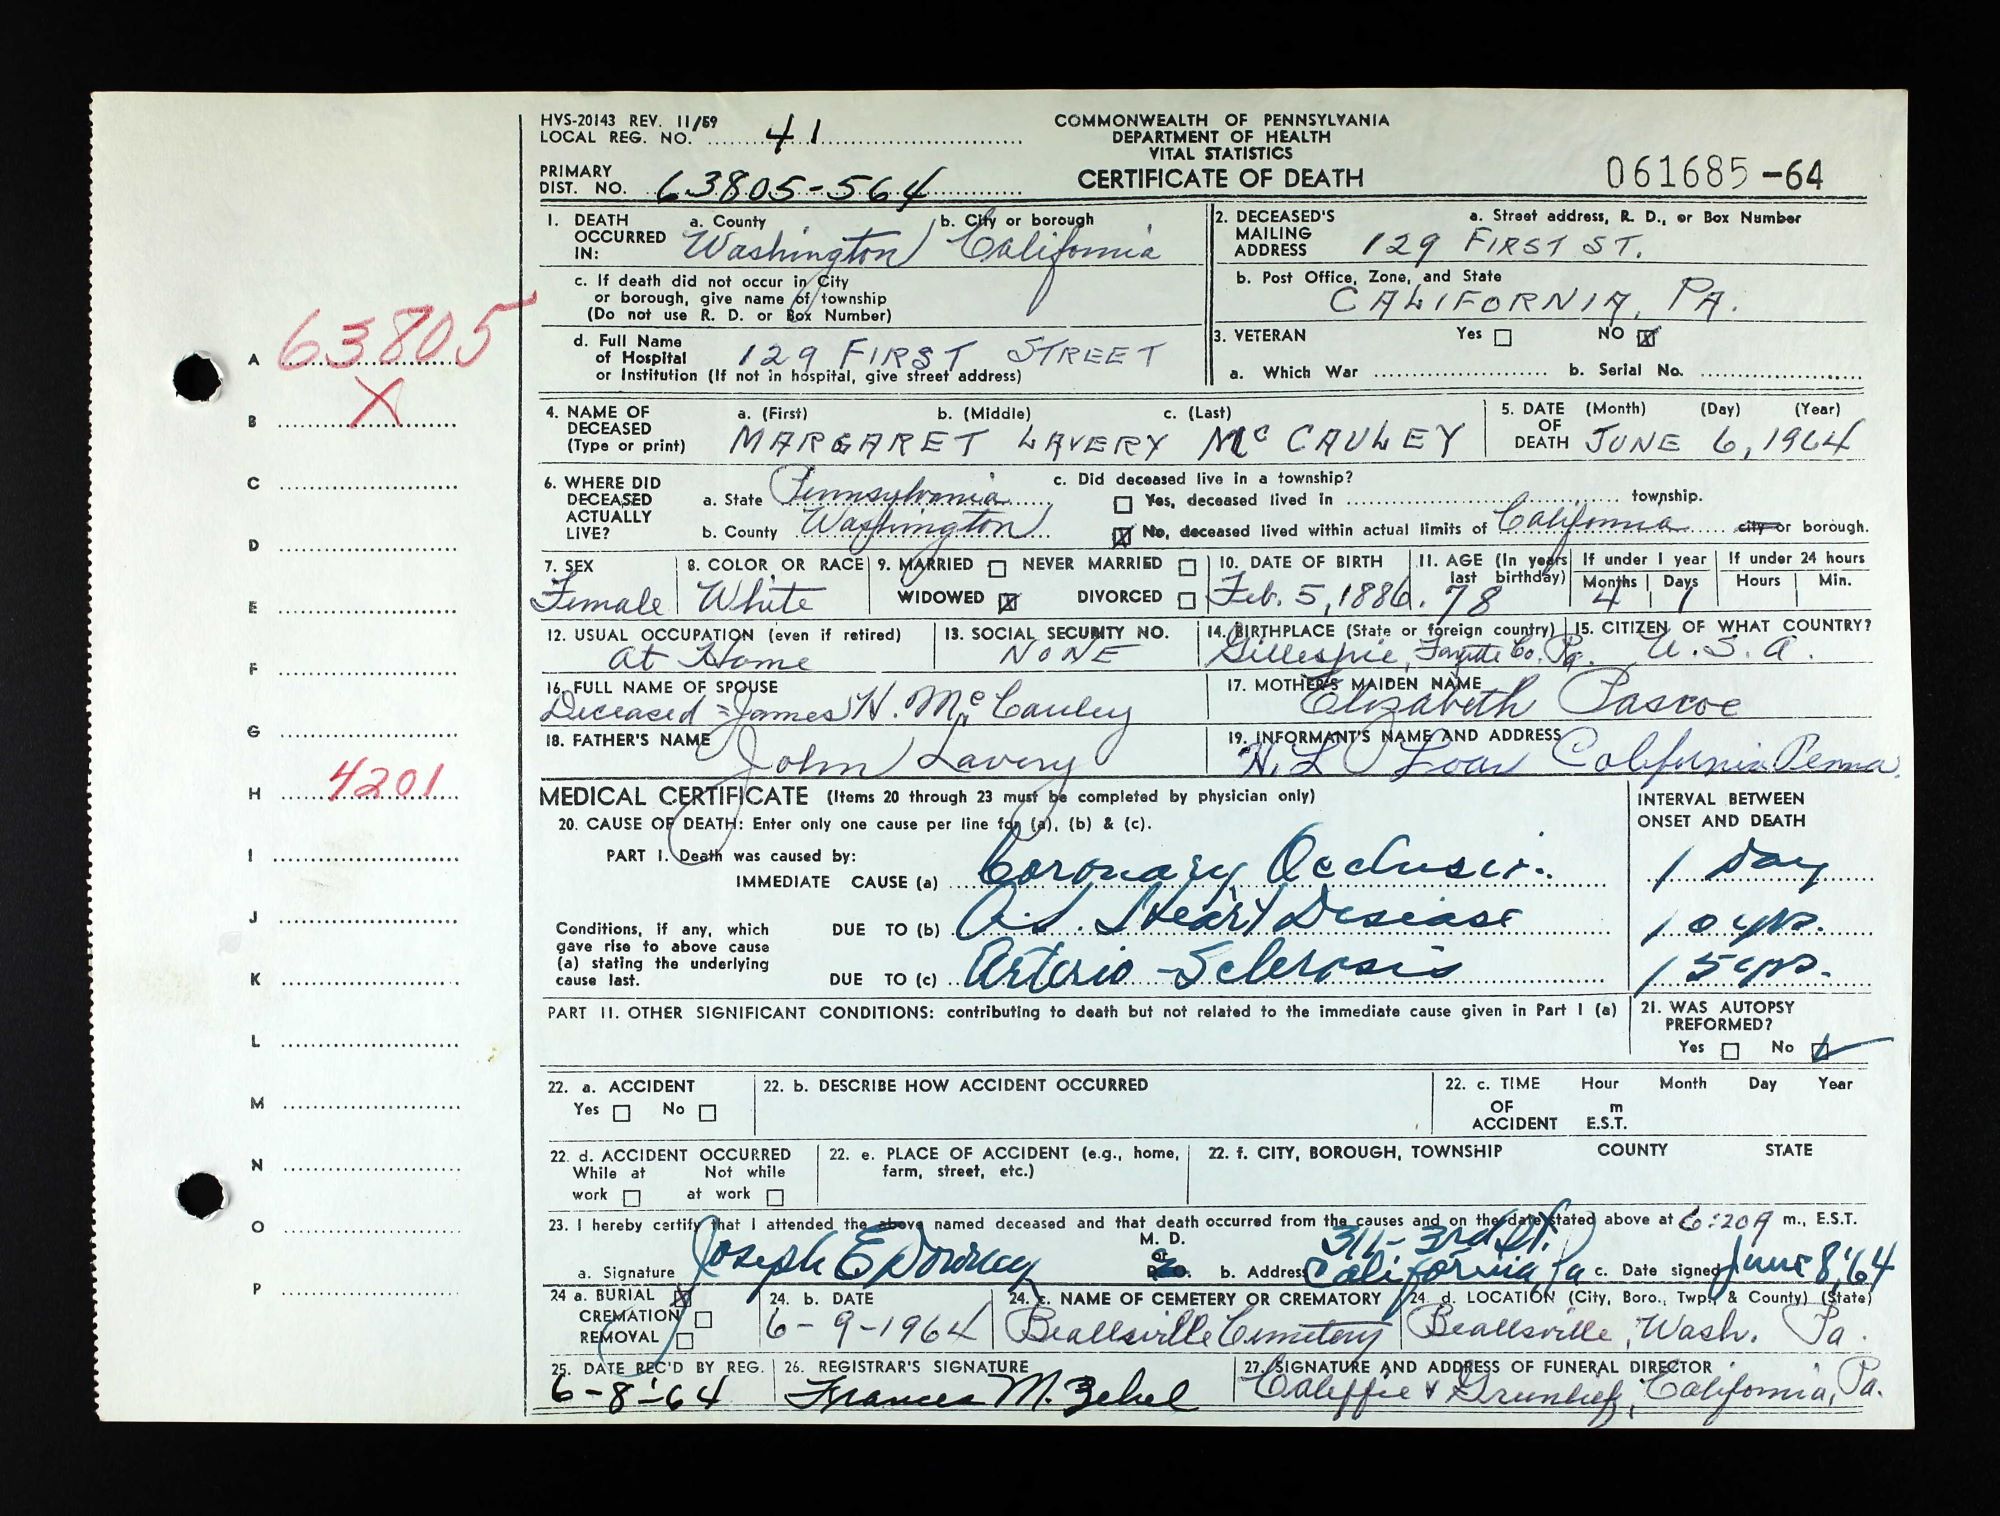 HVS-20143 REV. 11/59
LOCAL REG. NO. 41
COMMONWEALTH OF PENNSYLVANIA
DEPARTMENT OF HEALTH
VITAL STATISTICS
CERTIFICATE OF DEATH
PRIMARY
DIST. NO. 63805-564
061685-64
1. DEATH OCCURRED IN: a. County Washington
b. City or borough California
c. If death did not occur in City
or borough, give name of township
(Do not use R. D. or Box Number)
d. Full Name
of Hospital 129 FIRST STREET
or Institution (If not in hospital, give street address)
2. DECEASED'S MAILING ADDRESS a. Street address, R. D., or Box Number
129 FIRST ST.
b. Post Office, Zone, and State
CALIFORNIA, PA.
3. VETERAN Yes NO X
a. Which War b. Serial No.
4. NAME OF DECEASED (Type or print) a. (First) b. (Middle) c. (Last)
MARGARET LAVERY McCAULEY
5. DATE OF DEATH (Month) (Day) (Year)
JUNE 6, 1964
6. WHERE DID DECEASED ACTUALLY LIVE?
a. State Pennsylvania
b. County Washington
c. Did deceased live in a township?
Yes, deceased lived in township.
X No, deceased lived within actual limits of California city or borough.
7. SEX Female
8. COLOR OR RACE White
9. MARRIED NEVER MARRIED
WIDOWED X DIVORCED
10. DATE OF BIRTH Feb. 5, 1886.
11. AGE (In years last birthday) 78
If under 1 year Months 4 Days 1
If under 24 hours Hours Min.
12. USUAL OCCUPATION (even if retired) at Home
13. SOCIAL SECURITY NO. NONE
14. BIRTHPLACE (State or foreign country) Gillespie, Fayette Co. Pa.
15. CITIZEN OF WHAT COUNTRY? U.S.A.
16. FULL NAME OF SPOUSE
Deceased = James H. McCauley
17. MOTHER'S MAIDEN NAME
Elizabeth Pascoe
18. FATHER'S NAME
John Lavery
19. INFORMANT'S NAME AND ADDRESS
H. L. Loar California Penna.
MEDICAL CERTIFICATE (Items 20 through 23 must be completed by physician only)
20. CAUSE OF DEATH: Enter only one cause per line for (a), (b) & (c).
INTERVAL BETWEEN
ONSET AND DEATH
PART I. Death was caused by:
IMMEDIATE CAUSE (a) Coronary Occlusion. 1 Day
Conditions, if any, which
gave rise to above cause
(a) stating the underlying
cause last.
DUE TO (b) A.S. Heart Disease 10 yrs.
DUE TO (c) Arterio-Sclerosis 15 yrs.
PART II. OTHER SIGNIFICANT CONDITIONS: contributing to death but not related to the immediate cause given in Part I (a)
21. WAS AUTOPSY
PREFORMED?
Yes No ✓
22. a. ACCIDENT
Yes No
22. b. DESCRIBE HOW ACCIDENT OCCURRED
22. c. TIME OF ACCIDENT Hour Month Day Year
m
E.S.T.
22. d. ACCIDENT OCCURRED
While at work Not while at work
22. e. PLACE OF ACCIDENT (e.g., home,
farm, street, etc.)
22. f. CITY, BOROUGH, TOWNSHIP COUNTY STATE
23. I hereby certify that I attended the above named deceased and that death occurred from the causes and on the date stated above at 6:20A m., E.S.T.
a. Signature Joseph E Downey M. D. or
b. Address 311-3rd St. California, Pa
c. Date signed June 8, '64
24 a. BURIAL X
CREMATION
REMOVAL
24. b. DATE
6-9-1964
24. c. NAME OF CEMETERY OR CREMATORY
Beallsville Cemetery
24. d. LOCATION (City, Boro., Twp., & County) (State)
Beallsville, Wash. Pa.
25. DATE REC'D BY REG.
6-8-'64
26. REGISTRAR'S SIGNATURE
Frances M. Zebel
27. SIGNATURE AND ADDRESS OF FUNERAL DIRECTOR
California, Pa.
A 63805
B X
C
D
E
F
G
H 4201
I
J
K
L
M
N
O
P